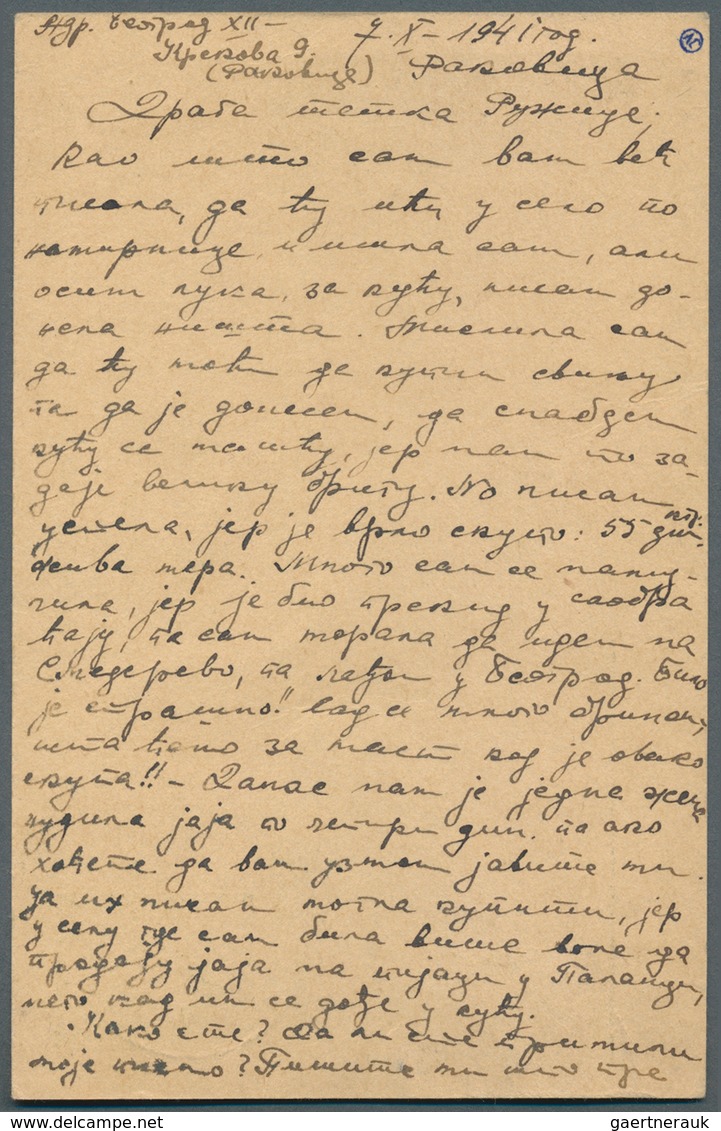 Адр. Београд XII –
Крекова 9.
(Раковица)
7. X – 1941 год.
Раковица
Драга тетка Ружице,
Као што сам вам већ
писала, да ћу ићи у село по
намирнице, и ишла сам, али
осим лука, за кућу, нисам до-
нела ништа. Мислила сам
да ћу моћи да купим свињу
па да је донесем, да снабдем
кућу са машћу, јер нам то за-
даје велику бригу. No нисам
успела, јер је врло скупо: 55 дин.
жива мера. Много сам се намu-
чила, јер је био прекид у саобра
ћају, па сам морала да идем на
Смедерево, па лађом у Београд. Било
је страшно! Сад се много бринем,
шта ћемо за маст кад је овако
скупа!! – Данас нам је једна жена
нудила јаја по четири дин. па ако
хоћете да вам узмем јавите ми.
Ја их нисам могла купити, јер
у селу где сам била више воле да
продају јаја на пијаци у Паланци,
него кад им се дође у кућу.
Како сте? Да ли сте примили
моје писмо? Пишите ми што пре
gaertnerauk